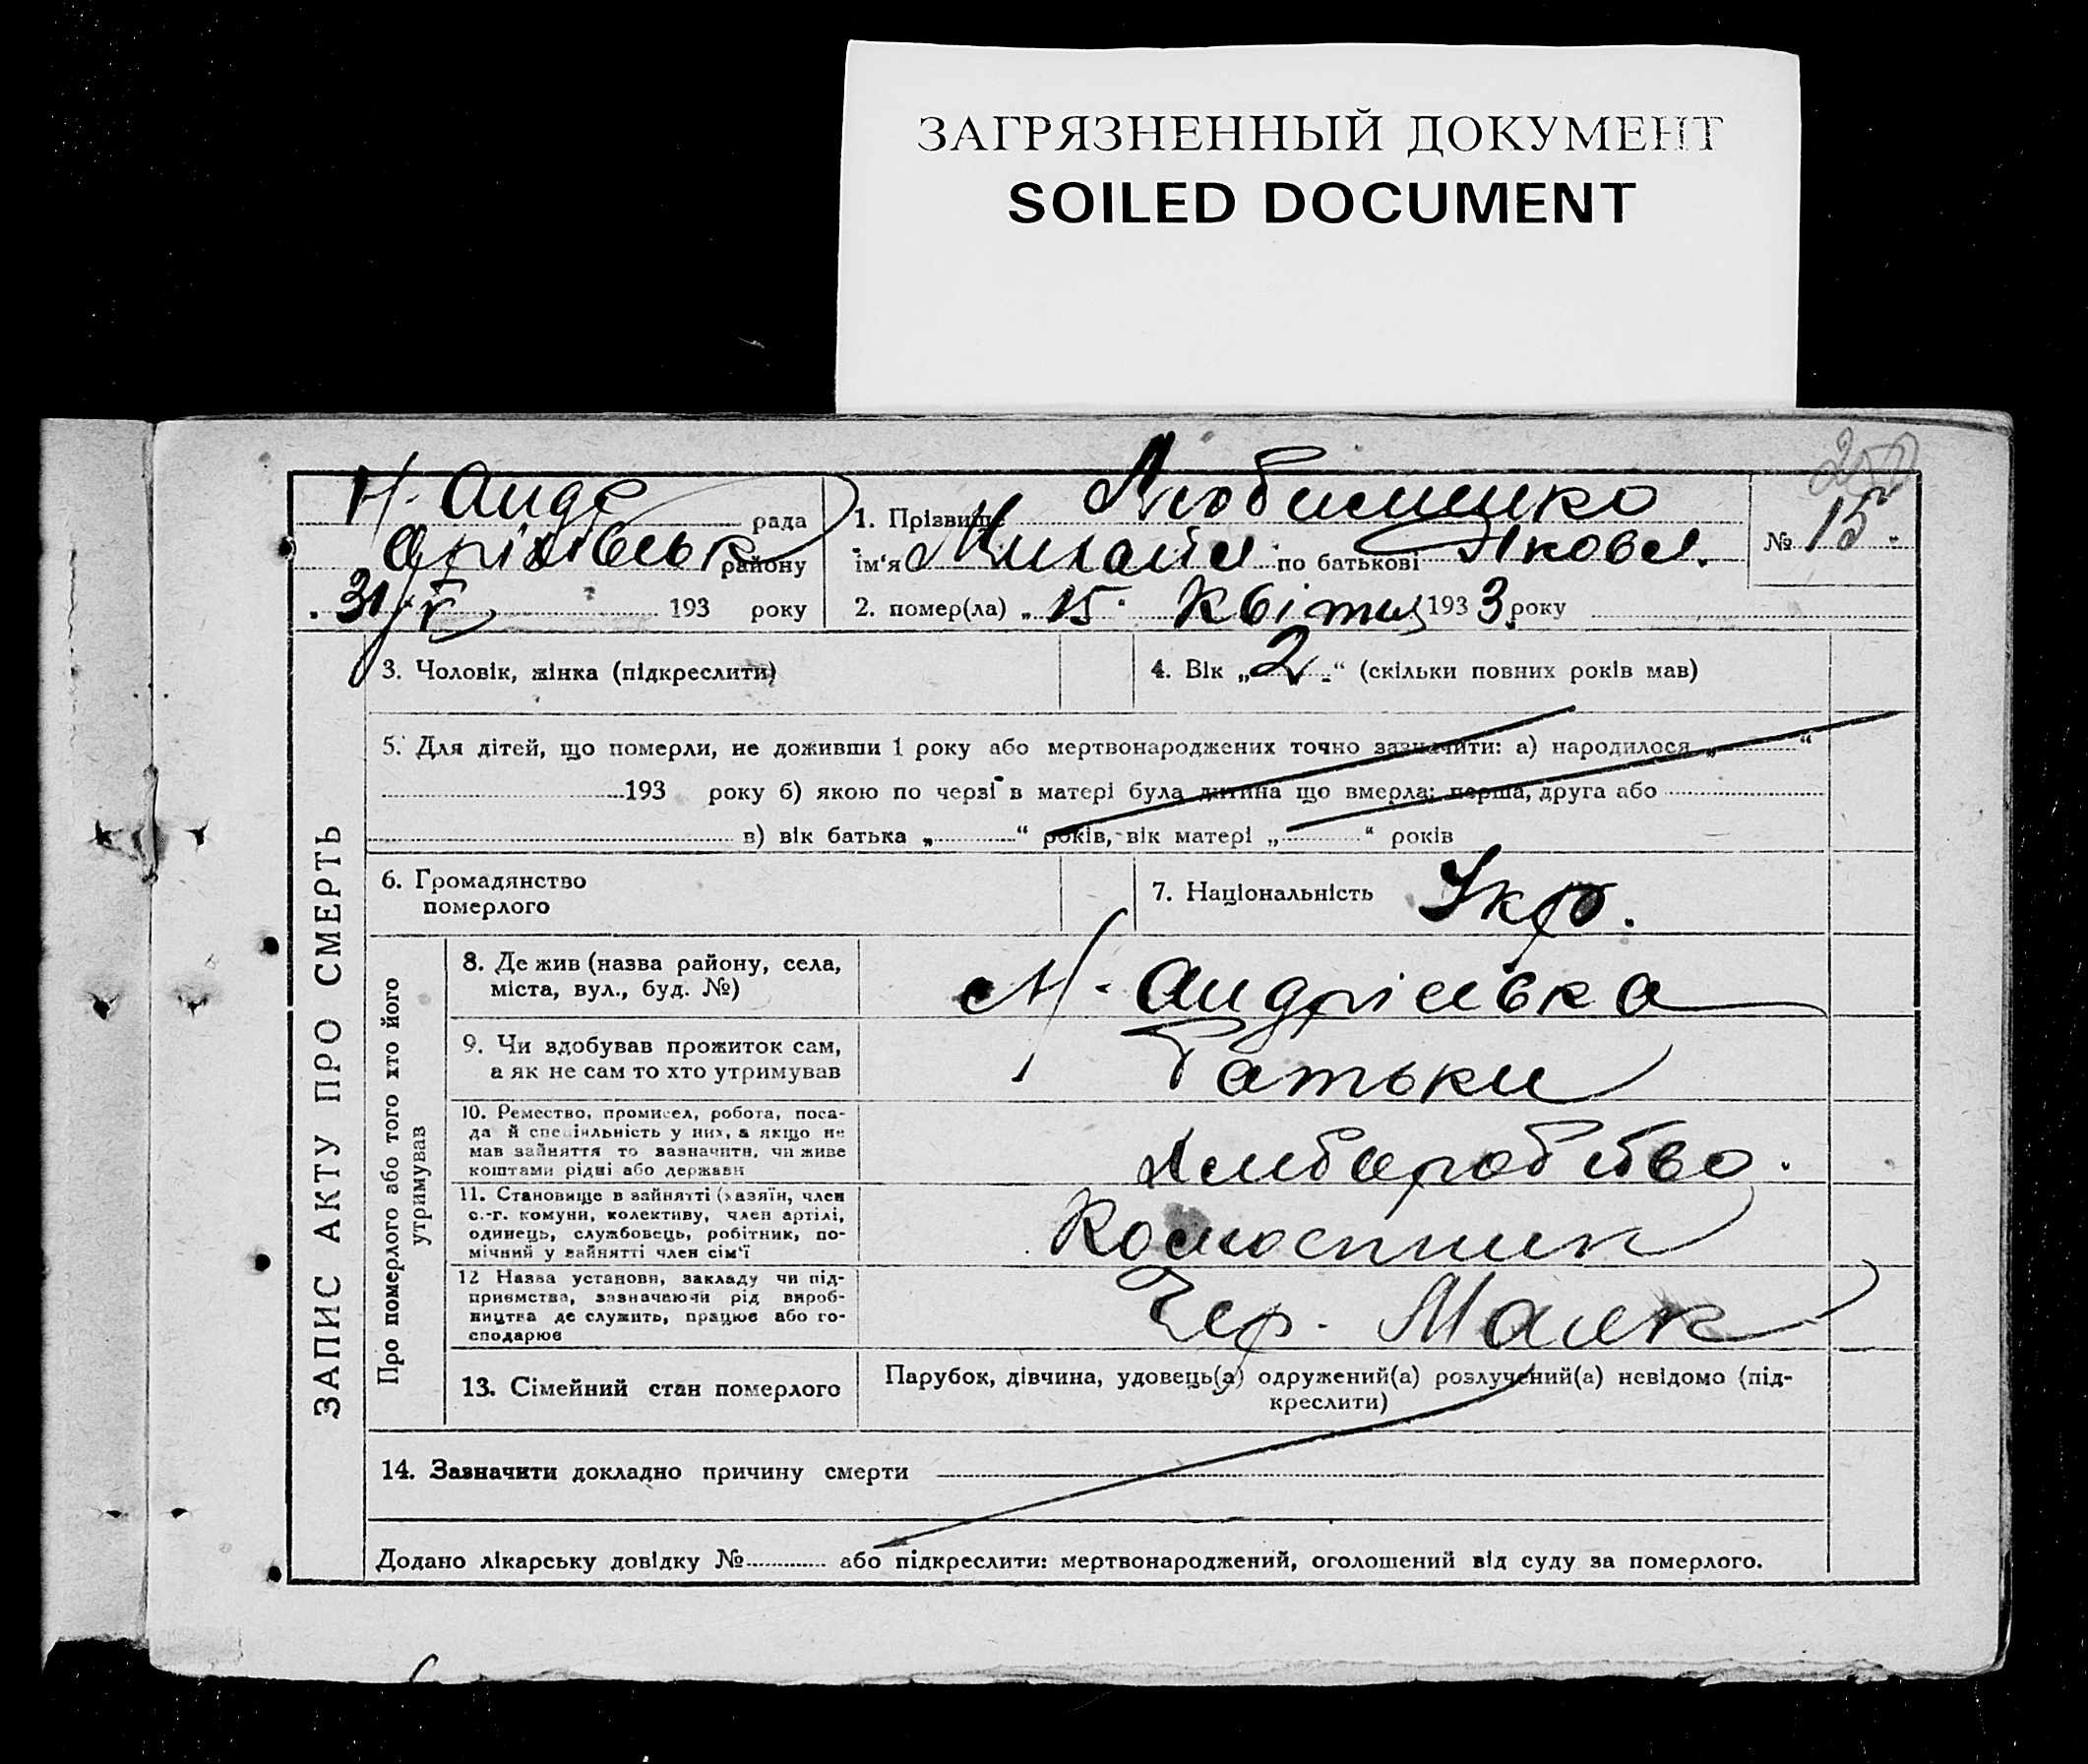 ЗАГРЯЗНЕННЫЙ ДОКУМЕНТ
SOILED DOCUMENT
250
Н. Андр рада
Оріхівськ району
31/V 193 року
1. Прізвище Любименко
ім'я Михайло по батькові Яковл.
2. помер(ла) „ 15 " Квітня 1933 року
№ 15
ЗАПИС АКТУ ПРО СМЕРТЬ
3. Чоловік, жінка (підкреслити)
4. Вік „ 2 “ (скільки повних років мав)
5. Для дітей, що померли, не доживши 1 року або мертвонароджених точно зазначити: а) народилося „ “
193 року б) якою по черзі в матері була дитина що вмерла: перша, друга або
в) вік батька „ “ років, вік матері „ “ років
6. Громадянство
померлого
7. Національність Укр.
Про померлого або того хто його
утримував
8. Де жив (назва району, села,
міста, вул., буд. №)
Н. Андріївка
9. Чи здобував прожиток сам,
а як не сам то хто утримував
Батьки
10. Ремество, промисел, робота, поса-
да й спеціяльність у них, а якщо не
мав зайняття то зазначити, чи живе
коштами рідні або держави
Хліборобство.
11. Становище в зайнятті (хазяїн, член
с.-г. комуни, колективу, член артілі,
одинець, службовець, робітник, по-
мічний у зайнятті член сім'ї
Колгоспник
12 Назва установи, закладу чи під-
приємства, зазначаючи рід вироб-
ництва де служить, працює або го-
сподарює
Чер. Маяк
13. Сімейний стан померлого
Парубок, дівчина, удовець(а) одружений(а) розлучений(а) невідомо (під-
креслити)
14. Зазначити докладно причину смерти
Додано лікарську довідку № або підкреслити: мертвонароджений, оголошений від суду за померлого.